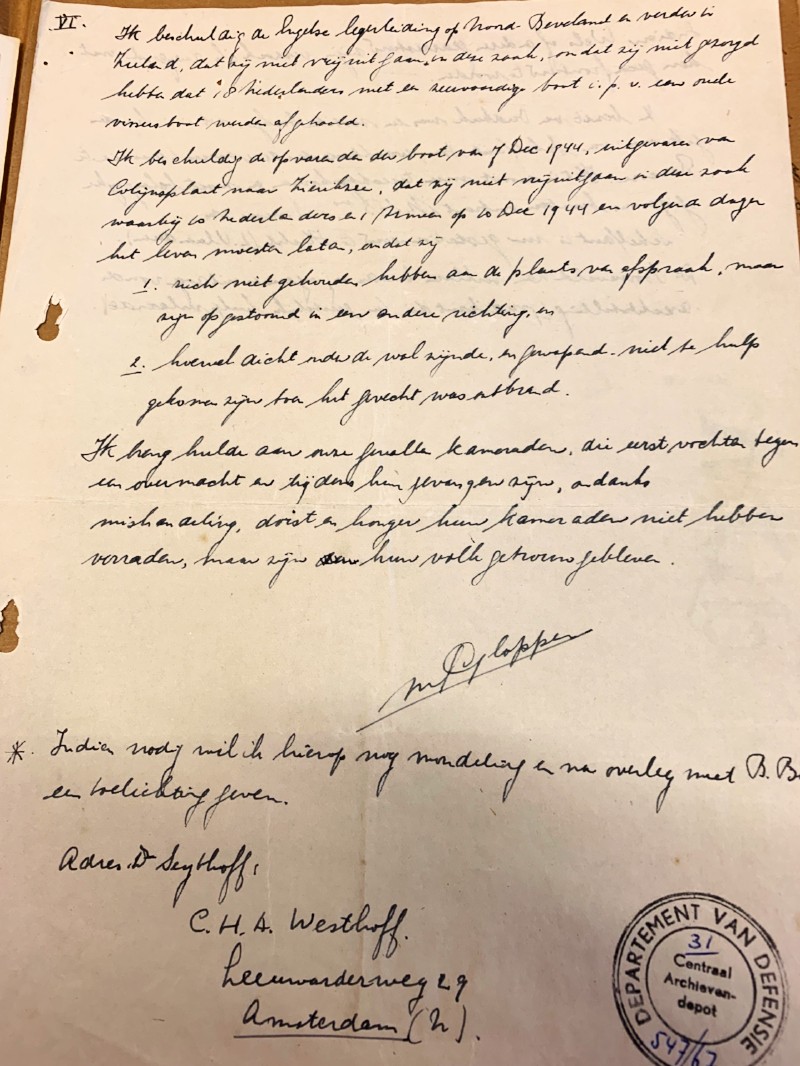 VI.
Ik beschuldig de Engelse legerleiding op Noord-Beveland en verder in
Zeeland, dat zij niet vrijuit gaan, in deze zaak, omdat zij niet gezorgd
hebben dat 18 Nederlanders met een zeewaardige boot i.p.v. een oude
vissersboot werden afgehaald.
Ik beschuldig de opvarenden der boot van 7 Dec 1944, uitgevaren van
Colijnsplaat naar Zierikzee, dat zij niet vrijuitgaan in deze zaak
waarbij 10 Nederlanders en 1 op 10 Dec 1944 en volgende dagen
het leven moesten laten, omdat zij
1. zich niet gehouden hebben aan de plaats van afspraak, maar
zijn opgestoomd in een andere richting, en
2. hoewel dicht onder de wal zijnde, en gewapend niet te hulp
gekomen zijn toen het gevecht was ontbrand.
Ik breng hulde aan onze gevallen kameraden, die eerst vochten tegen
een overmacht en tijdens hun gevangen zijn, ondanks
mishandeling, dorst en honger hun kameraden niet hebben
verraden, maar zijn hun volk getrouw gebleven.
Glopper
*. Indien nodig wil ik hierop nog mondeling en na overleg met B.B.
een toelichting geven.
Adres Seythoff:
C.H.A. Westhoff.
Leeuwarderweg 29
Amsterdam (N).
DEPARTEMENT VAN DEFENSIE
31
Centraal
Archieven-
depot
547/67